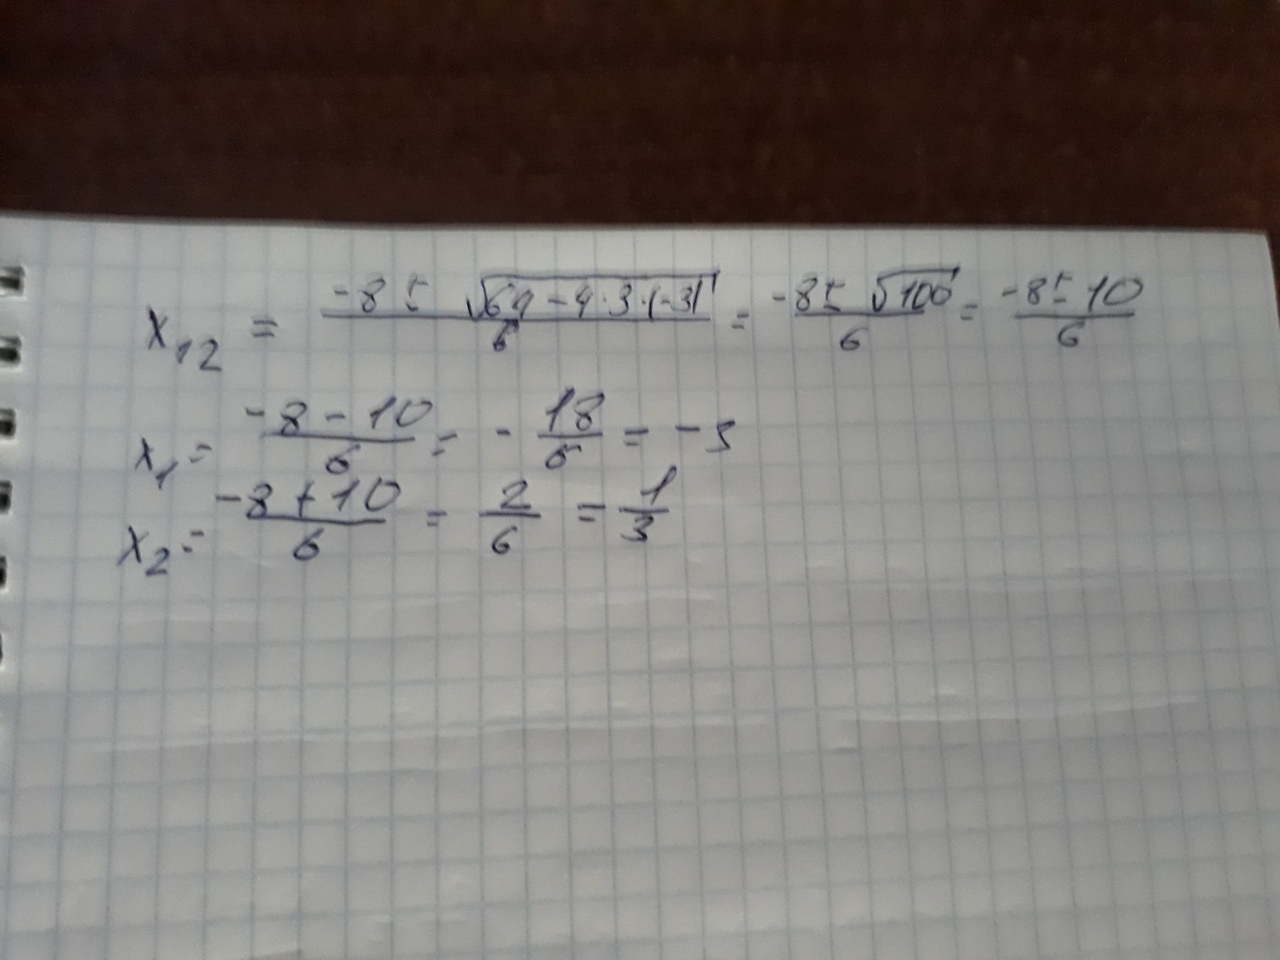 x₁₂ = (-8 ± √(64 - 4·3·(-3)))/6 = (-8 ± √100)/6 = (-8 ± 10)/6
x₁ = (-8 - 10)/6 = -18/6 = -3
x₂ = (-8 + 10)/6 = 2/6 = 1/3